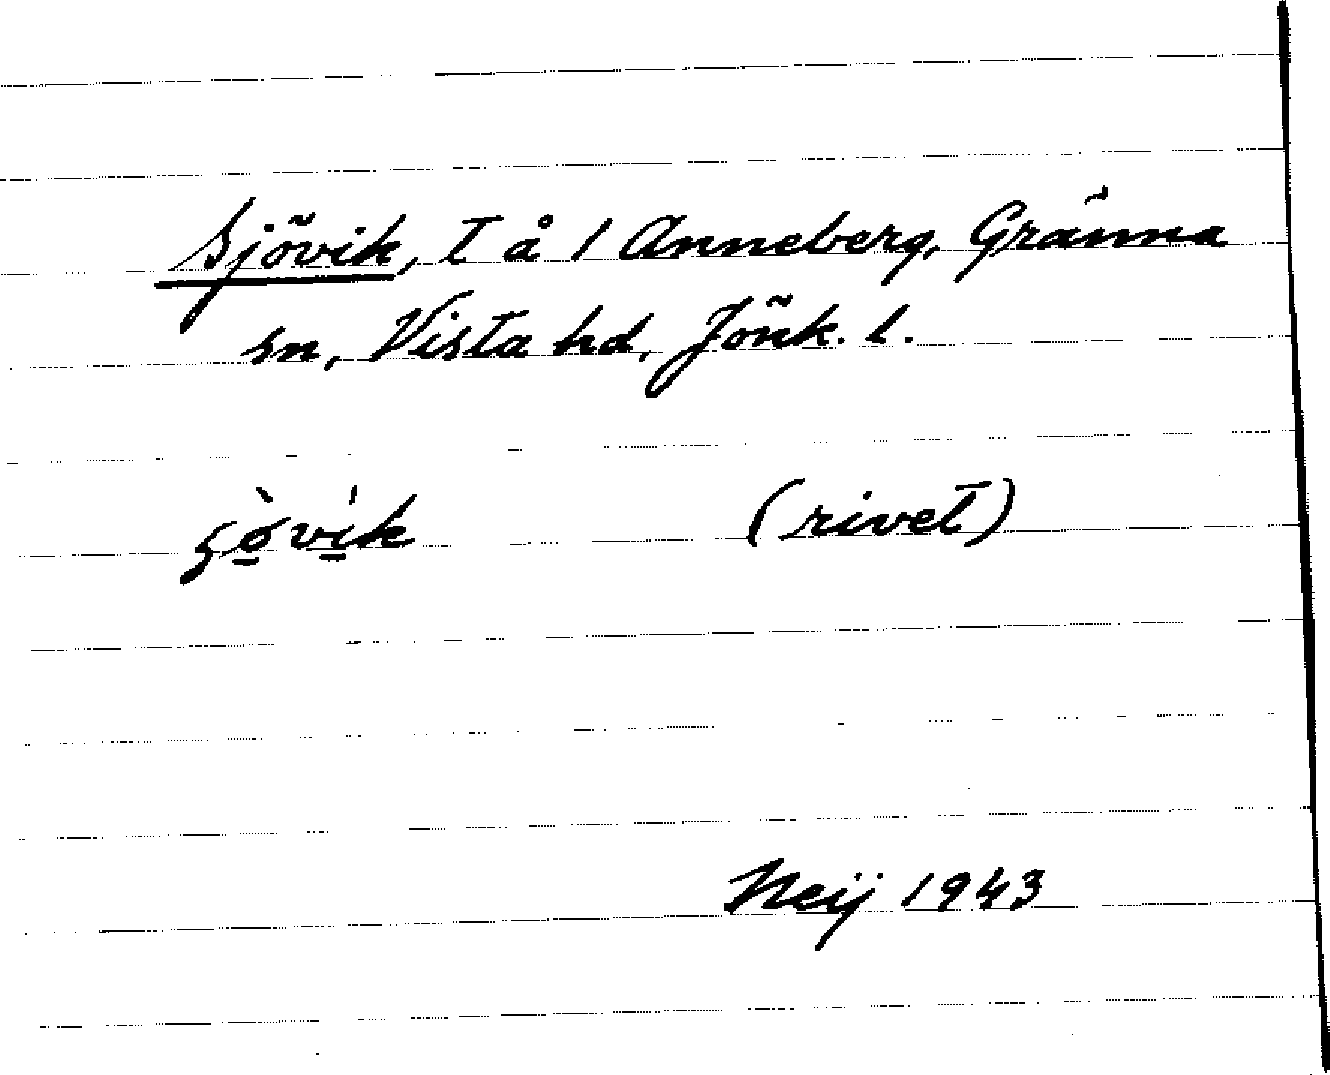 Sjövik, t å 1 Anneberg, Gränna
sn, Vista hd, Jönk. l.
ʂö̀vík (rivet)
Neij 1943